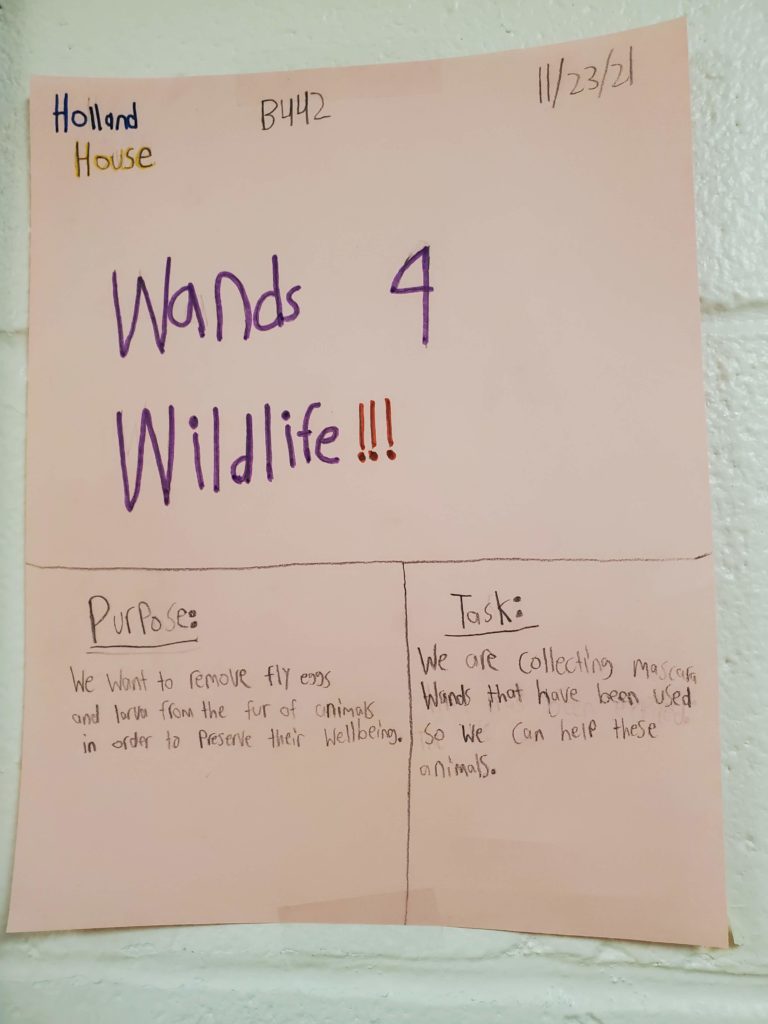 Holland B442 11/23/21
House
Wands 4
Wildlife!!!
Purpose:
We want to remove fly eggs
and larva from the fur of animals
in order to preserve their wellbeing.
Task:
We are collecting mascara
wands that have been used
so we can help these
animals.